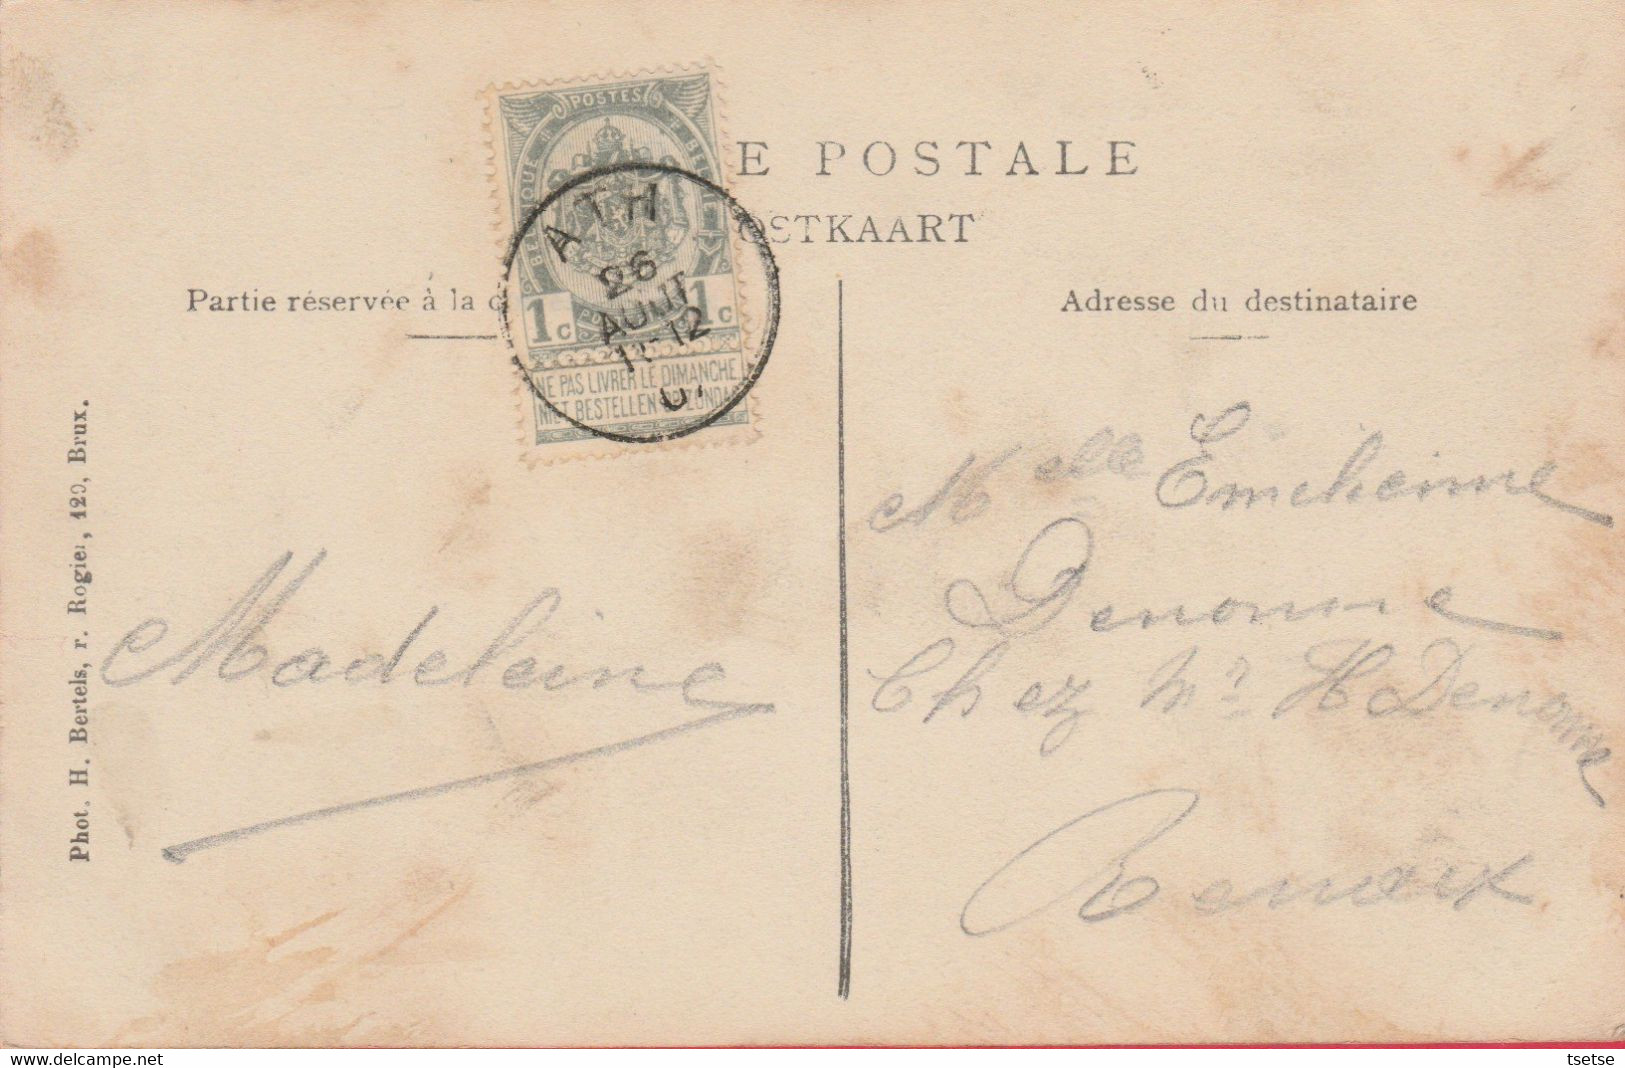 E POSTALE
OSTKAART
Partie réservée à la c
Adresse du destinataire
POSTES
BELGIQUE
BELGIE
1c 1c
NE PAS LIVRER LE DIMANCHE
NIET BESTELLEN OP ZONDAG
ATH
26
AOUT
12
Phot. H. Bertels, r. Rogier, 120, Brux.
Madeleine
Melle
Denonne
Chez Mr H Denonne
Renaix
tsetse